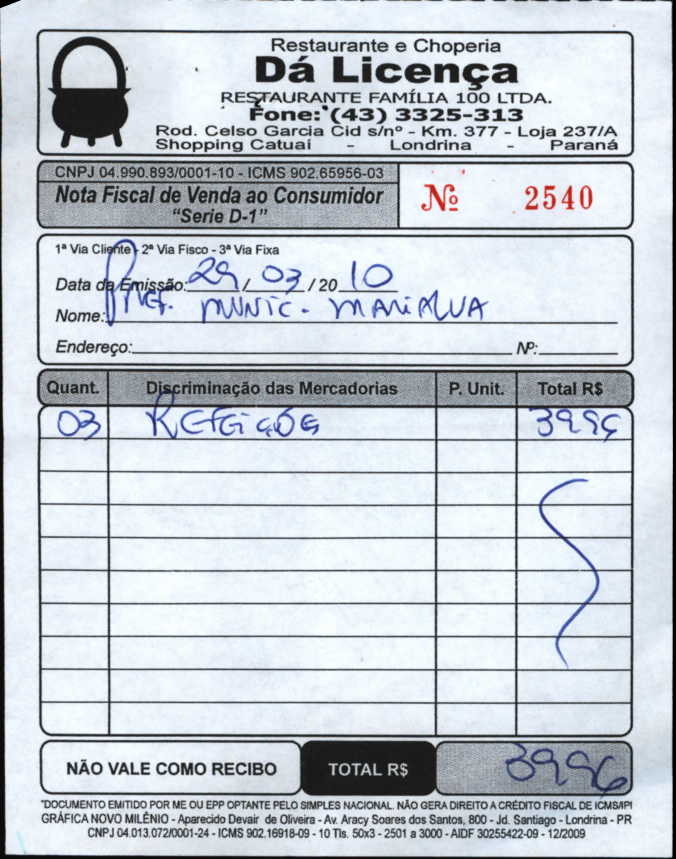 Restaurante e Choperia
Dá Licença
RESTAURANTE FAMÍLIA 100 LTDA.
Fone: (43) 3325-313
Rod. Celso Garcia Cid s/nº - Km. 377 - Loja 237/A
Shopping Catuaí - Londrina - Paraná
CNPJ 04.990.893/0001-10 - ICMS 902.65956-03
Nota Fiscal de Venda ao Consumidor
"Serie D-1"
Nº 2540
1ª Via Cliente - 2ª Via Fisco - 3ª Via Fixa
Data da Emissão: 29/03/2010
Nome: Pref. Munic. Marialva
Endereço: Nº:
Quant. Discriminação das Mercadorias P. Unit. Total R$
03 Refeições 3996
NÃO VALE COMO RECIBO TOTAL R$ 3996
"DOCUMENTO EMITIDO POR ME OU EPP OPTANTE PELO SIMPLES NACIONAL. NÃO GERA DIREITO A CRÉDITO FISCAL DE ICMS/IPI
GRÁFICA NOVO MILÊNIO - Aparecido Devair de Oliveira - Av. Aracy Soares dos Santos, 800 - Jd. Santiago - Londrina - PR
CNPJ 04.013.072/0001-24 - ICMS 902.16918-09 - 10 Tls. 50x3 - 2501 a 3000 - AIDF 30255422-09 - 12/2009